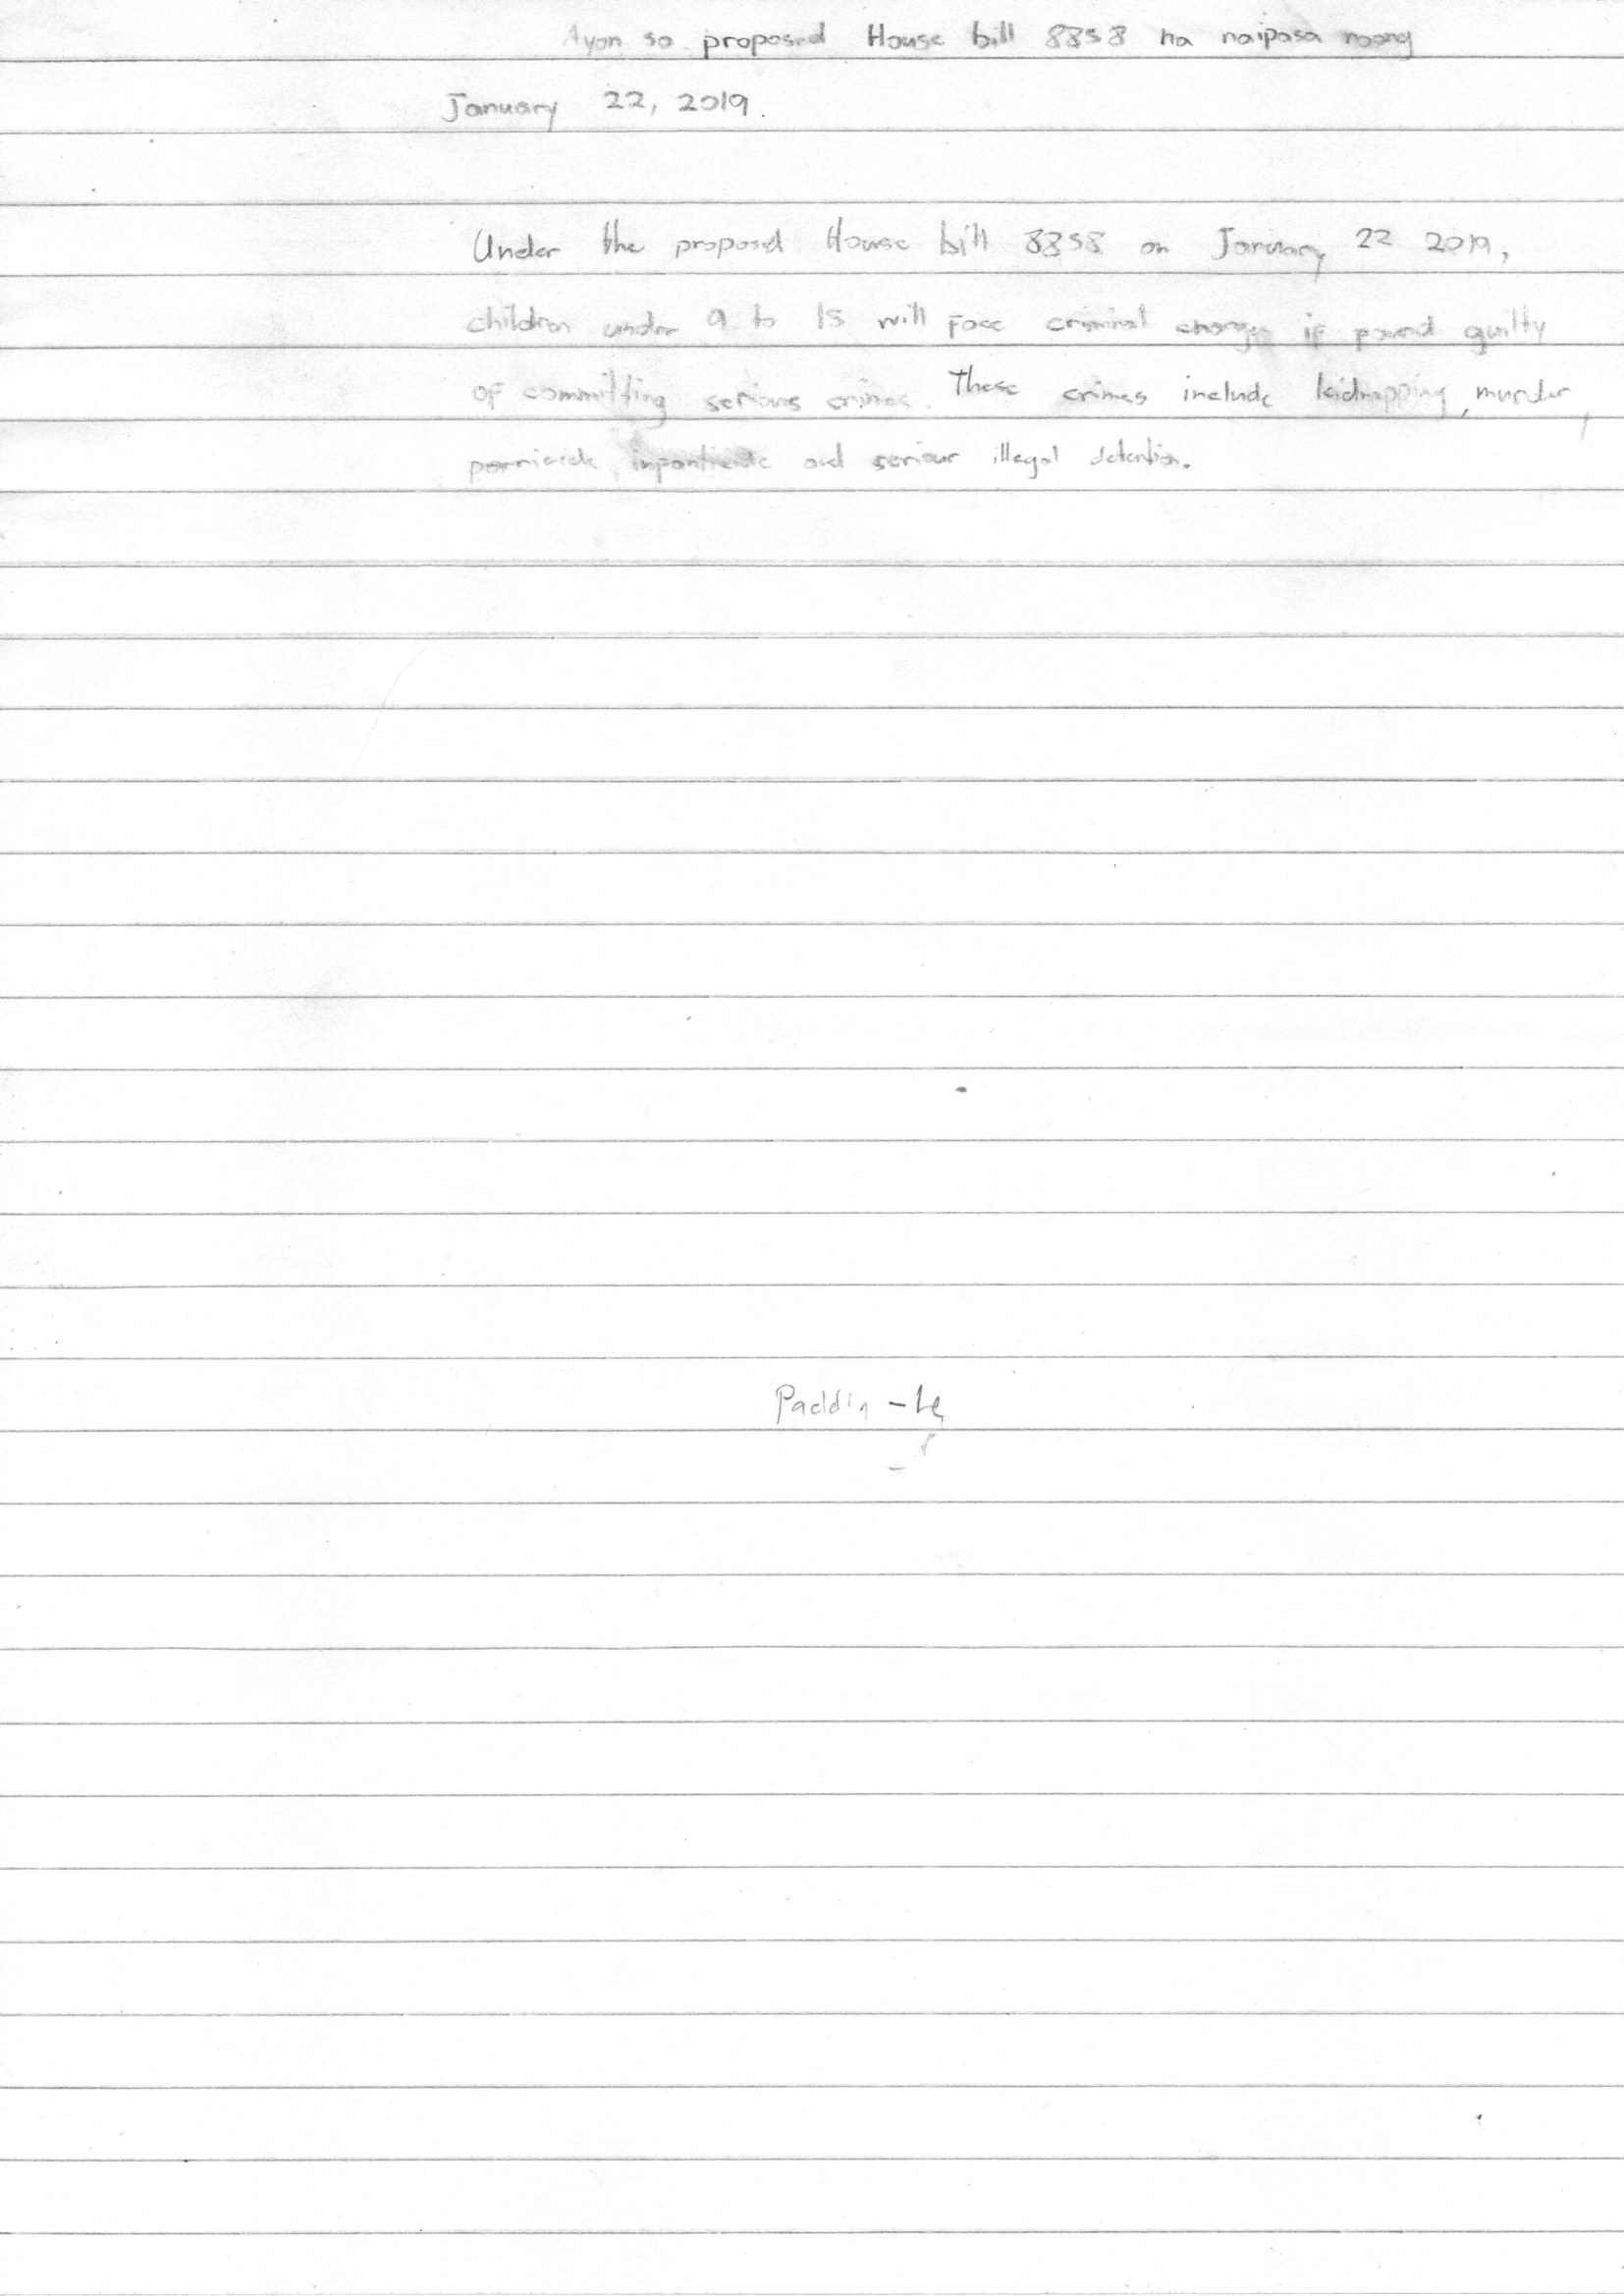 Ayon sa proposed House bill 8858 na naipasa noong
January 22, 2019.
Under the proposed House bill 8858 on January 22 2019,
children under 9 to 15 will face criminal charges if found guilty
of committing serious crimes. These crimes include kidnapping, murder,
parricide, infanticide and serious illegal detention.